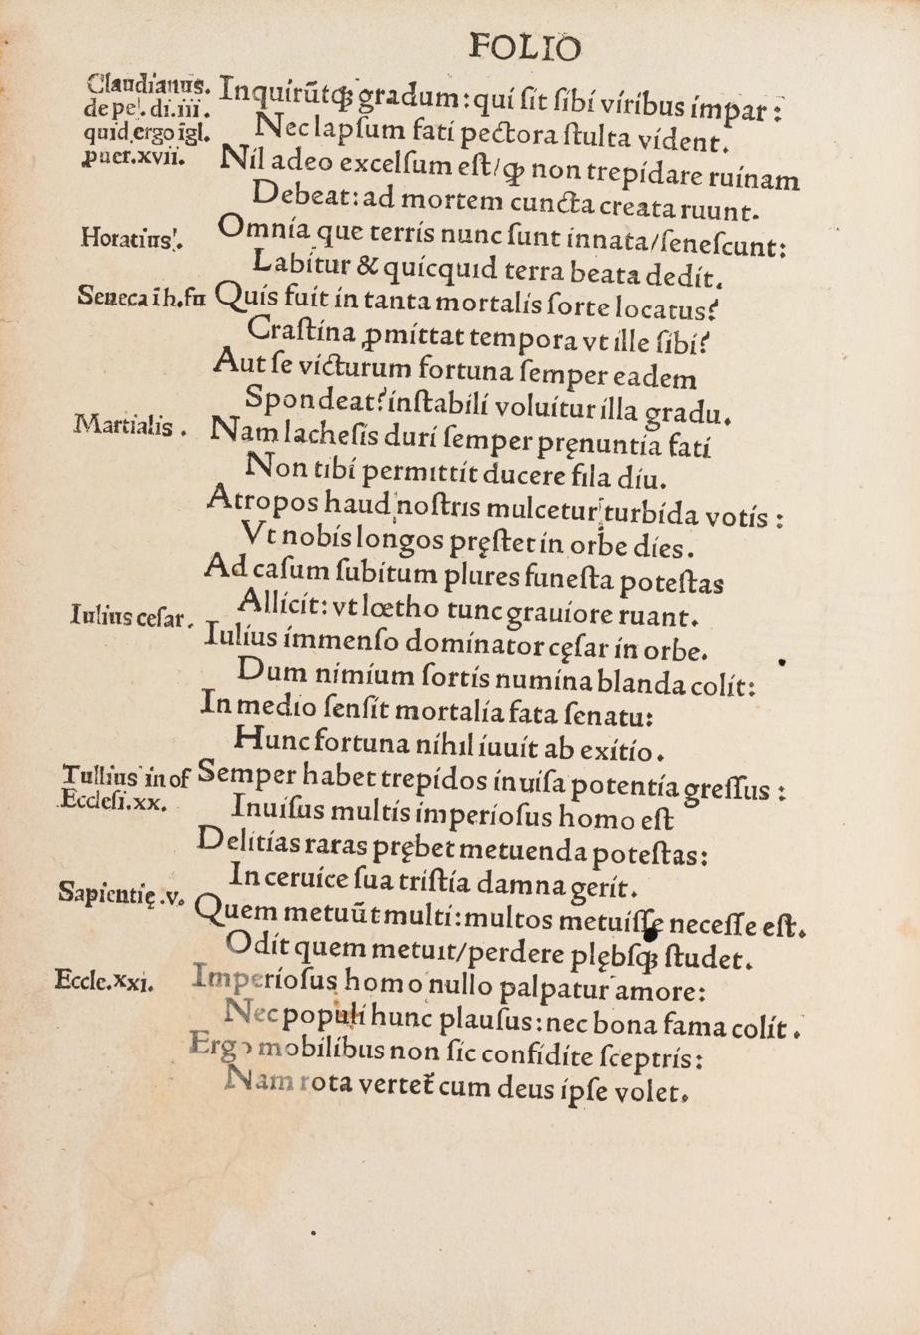 FOLIO
Claudianus.
de pe'. di.iii.
quid ergo īgl.
puer.xvii.
Inquirūtqꝫ gradum: qui ſit ſibi viribus impar:
Nec lapſum fati pectora ſtulta vident.
Nil adeo excelſum eſt/ꝙ non trepidare ruinam
Debeat: ad mortem cuncta creata ruunt.
Horatius'.
Omnia que terris nunc ſunt innata/ſeneſcunt:
Labitur & quicquid terra beata dedit.
Seneca ī h.fu
Quis fuit in tanta mortalis ſorte locatus?
Craſtina ꝓmittat tempora vt ille ſibi?
Aut ſe victurum fortuna ſemper eadem
Spondeat? inſtabili voluitur illa gradu.
Martialis.
Nam lacheſis duri ſemper pręnuntia fati
Non tibi permittit ducere fila diu.
Atropos haud noſtris mulcetur turbida votis:
Vt nobis longos pręſtet in orbe dies.
Ad caſum ſubitum plures funeſta poteſtas
Allicit: vt lœtho tunc grauiore ruant.
Iulius ceſar.
Iulius immenſo dominator cęſar in orbe.
Dum nimium fortis numina blanda colit:
In medio ſenſit mortalia fata ſenatu:
Hunc fortuna nihil iuuit ab exitio.
Tullius in of
Eccleſi.xx.
Semper habet trepidos inuiſa potentia greſſus:
Inuiſus multis imperioſus homo eſt
Delitias raras prębet metuenda poteſtas:
In ceruice ſua triſtia damna gerit.
Sapientię.v.
Quem metuūt multi: multos metuiſſe neceſſe eſt.
Odit quem metuit/perdere plębſqꝫ ſtudet.
Eccle.xxi.
Imperioſus homo nullo palpatur amore:
Nec populi hunc plauſus: nec bona fama colit.
Ergo mobilibus non ſic confidite ſceptris:
Nam rota verteť cum deus ipſe volet.